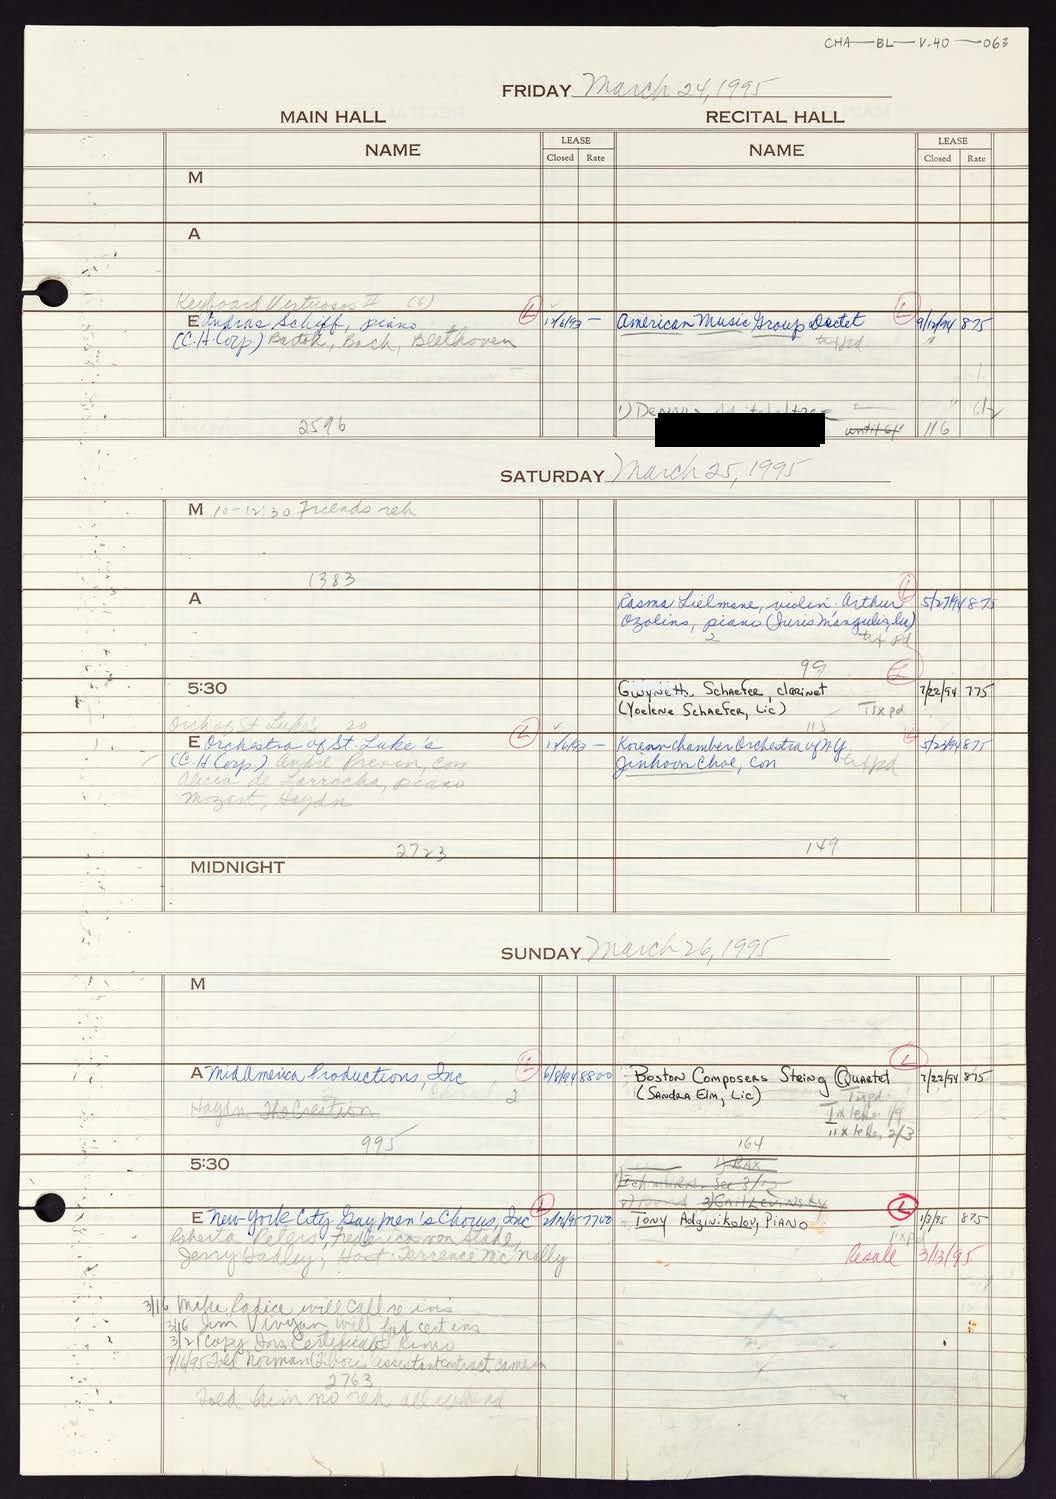 CHA—BL—V.40—063
FRIDAY March 24, 1995
MAIN HALL RECITAL HALL
NAME LEASE Closed Rate NAME LEASE Closed Rate
M
A
Keyboard Virtuosos II (6)
E Andras Schiff, piano L 12/6/93 — American Music Group Octet L 9/12/94 875
(C.H. Corp.) Bartok, Bach, Beethoven tix pd
1)
2596 until 6/1 116
SATURDAY March 25, 1995
M 10-12:30 Friends reh
1383
A Rasma Lielmane, violin, Arthur L 5/27/94 875
Ozolins, piano (Juris Mangulis, lic)
2 tix pd
99 L
5:30 Gwyneth Schaefer, clarinet 7/22/94 775
(Yoelene Schaefer, Lic) Tix pd
Orch of St Luke's 20 115
E Orchestra of St. Luke's L 12/6/93 — Korean Chamber Orchestra of N.Y. L 5/23/94 875
(C.H. Corp.) André Previn, con Jinhoon Choe, con tix pd
Alicia de Larrocha, piano
Mozart, Haydn
2723 149
MIDNIGHT
SUNDAY March 26, 1995
M
L
A MidAmerica Productions, Inc L 6/8/94 8800 Boston Composers String Quartet 7/22/94 875
2 (Sandra Elm, Lic) Tix pd
Haydn The Creation Tix lette. 1/9
tix lette. 2/3
995 164
5:30 1) Bax
See 3/13
2) Gail Levinsky
E New York City Gay Men's Chorus, Inc L 2/14/95 7700 Tony Adzinikolov, Piano L 1/3/95 875
Roberta Peters, Frederica von Stade, tix pd
Jerry Hadley, Host: Terrence McNally Resale 3/13/95
3/16 Mike Radice will call re ins
3/16 Jim Vivyan will fax cert ins
3/21 Copy Ins Certificate
Told Norman assistant contract came in
2763
Told him no reh all weekend